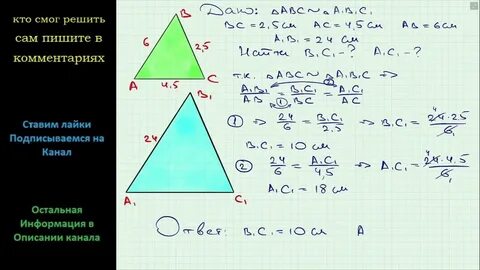 кто смог решить
сам пишите в
комментариях
Ставим лайки
Подписываемся на
Канал
Остальная
Информация в
Описании канала
B
6
2,5
A
4,5
C
B₁
24
A₁
C₁
Дано: △ABC ~ △A₁B₁C₁
BC = 2,5см AC = 4,5см AB = 6см
A₁B₁ = 24 см
Найти B₁C₁ - ? A₁C₁ - ?
т.к. △ABC ~ △A₁B₁C₁ ⇒
A₁B₁/AB = B₁C₁/BC = A₁C₁/AC
① ②
① ⇒ 24/6 = B₁C₁/2,5 ⇒ B₁C₁ = 24·2,5/6
4 1
B₁C₁ = 10 см
② 24/6 = A₁C₁/4,5 ⇒ A₁C₁ = 24·4,5/6
4 1
A₁C₁ = 18 см
Ответ: B₁C₁ = 10 см A